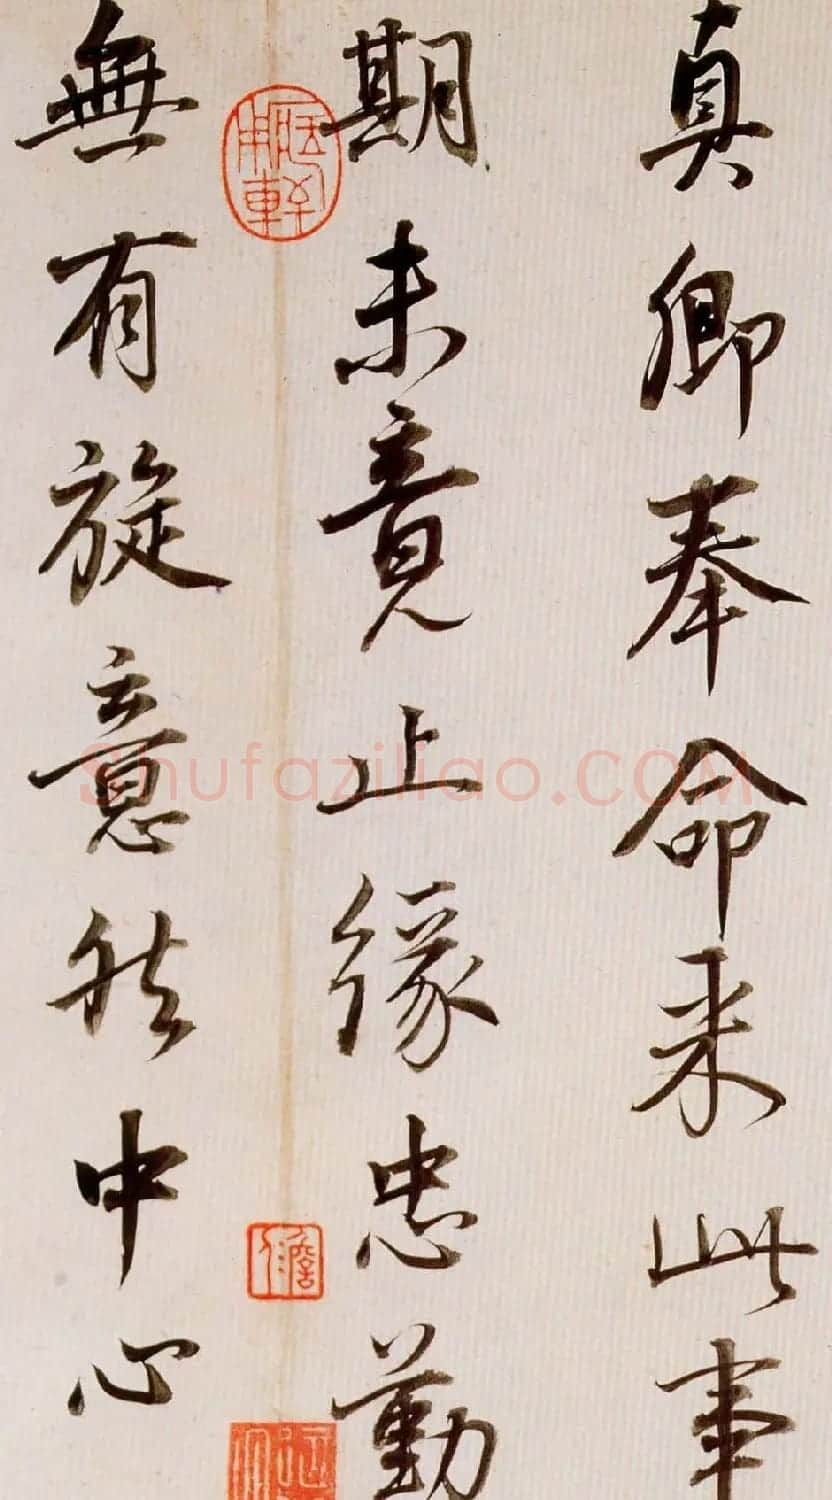 真卿奉命来此事
期未竟止緣忠勤
無有旋意然中心
Shufaziliao.COM